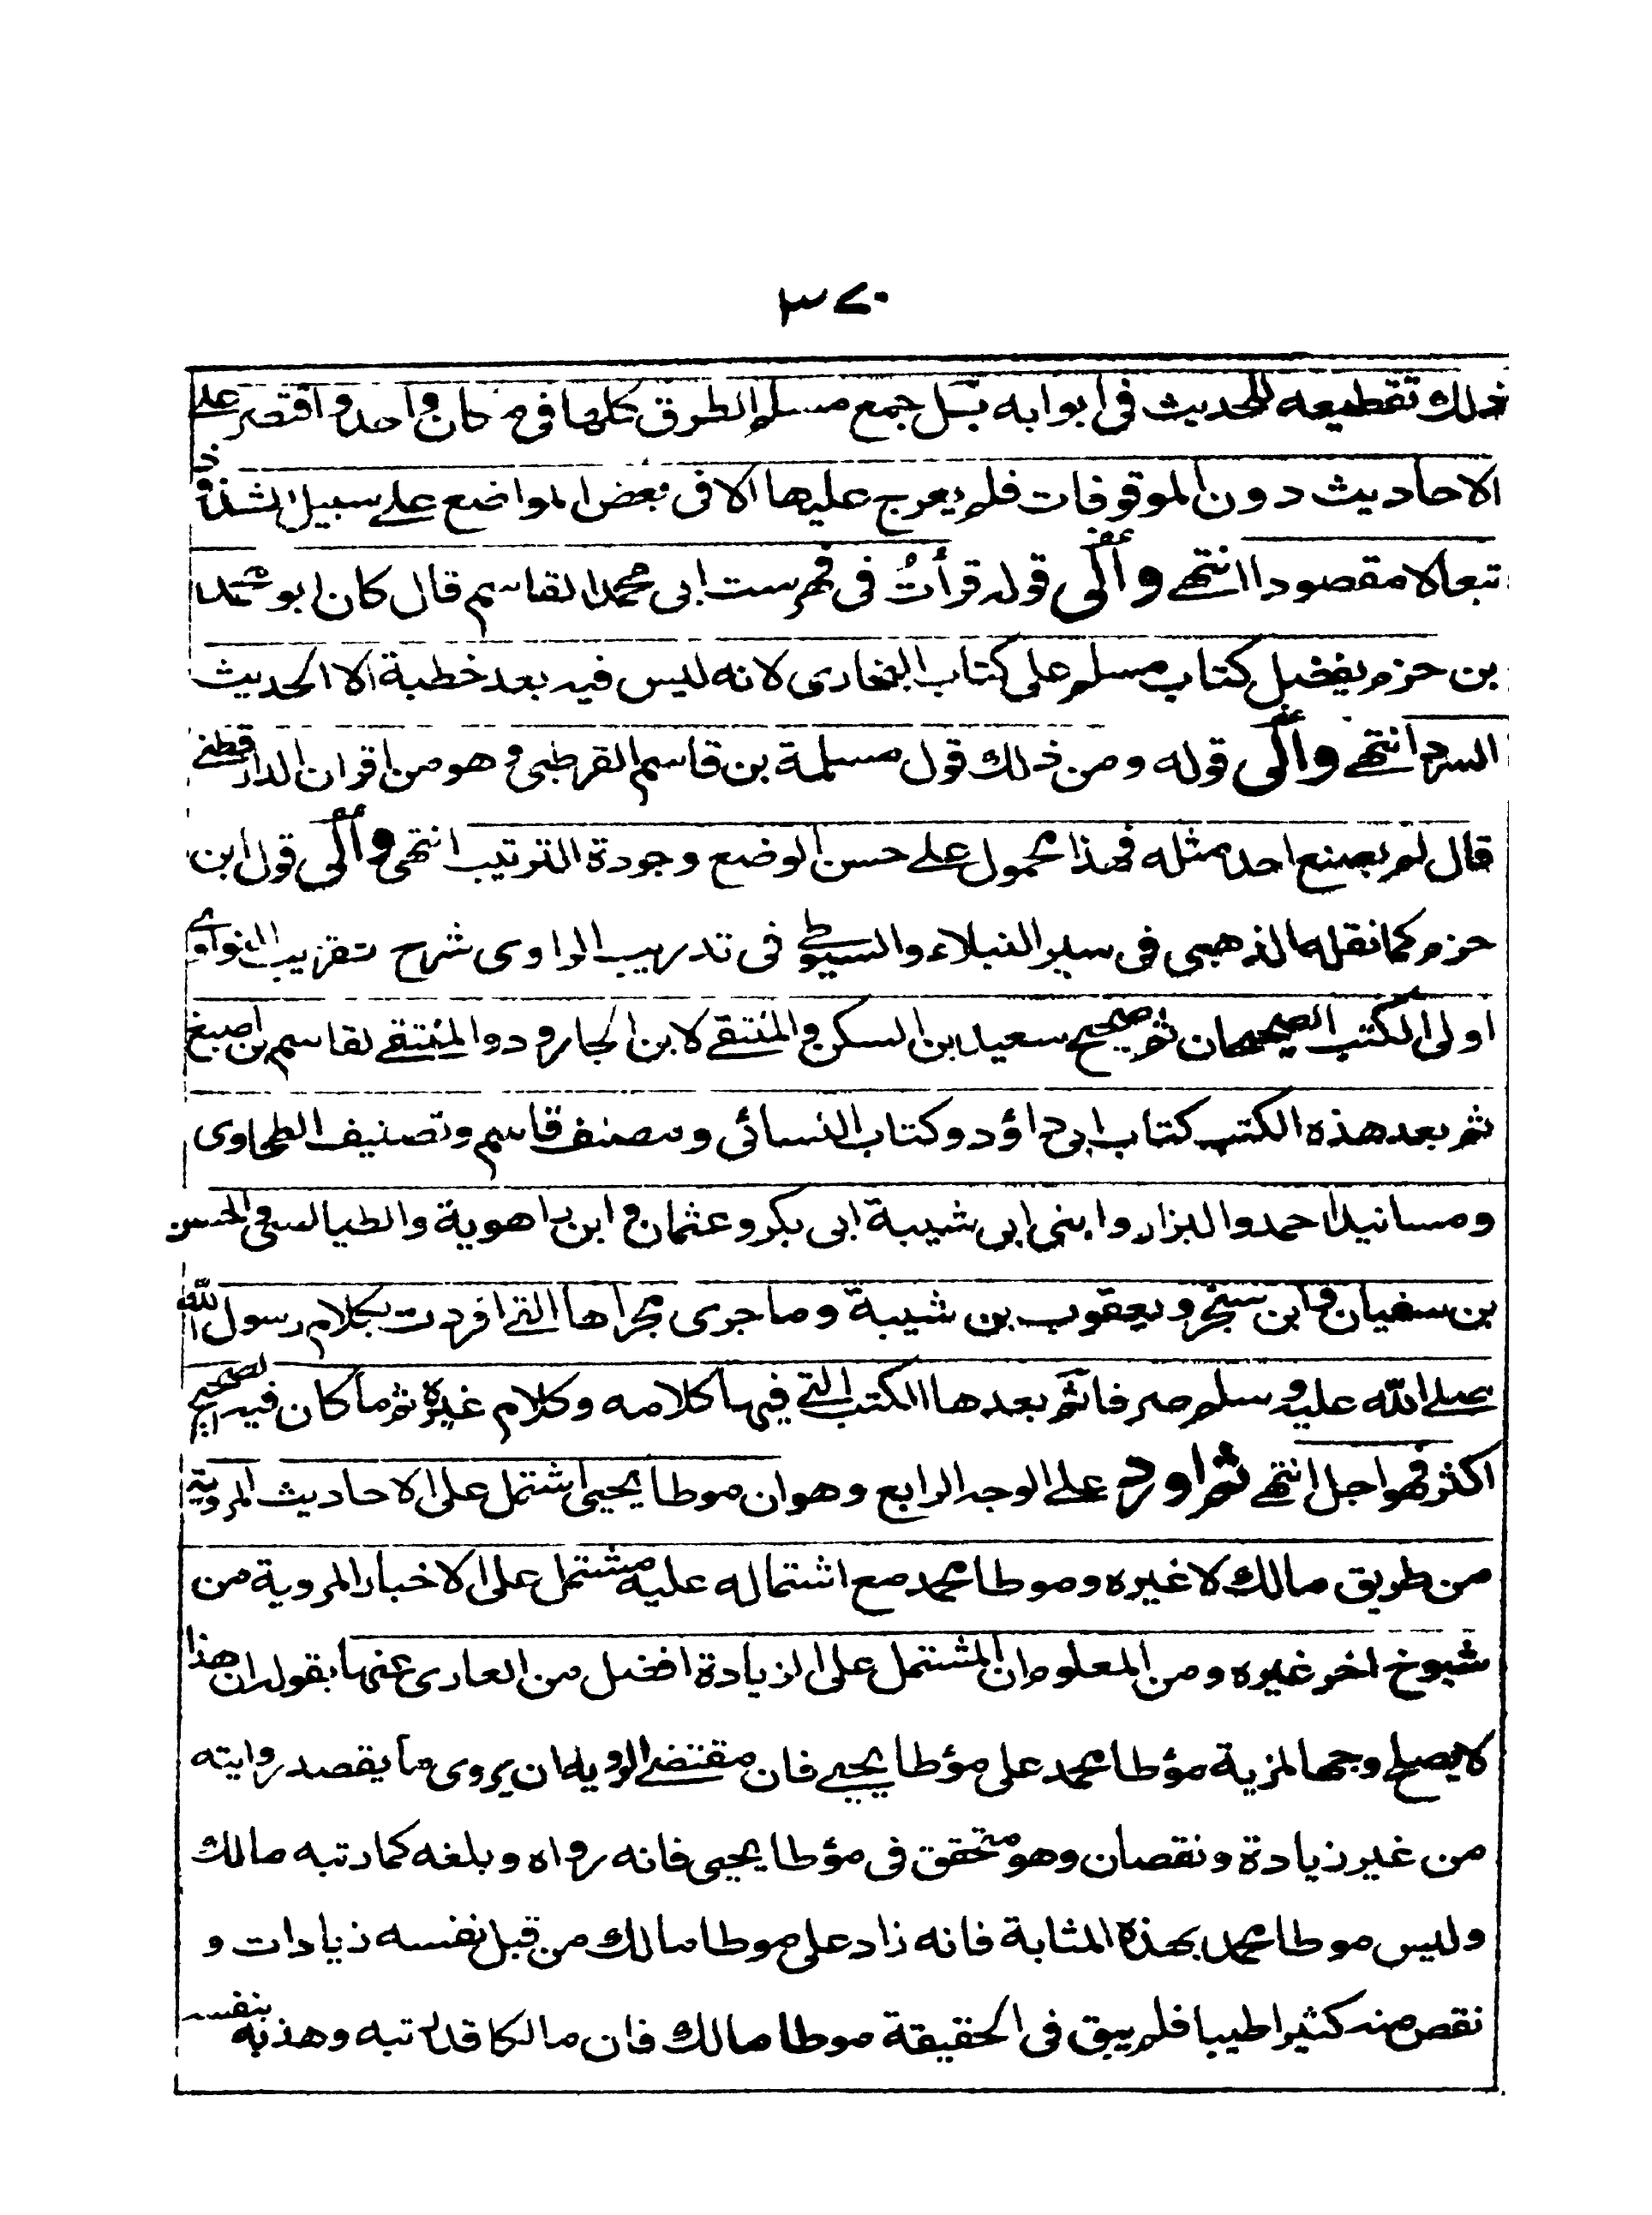 ٣٧٠
ذلك تقطيعه للحديث فى ابوابه بل جمع مسلم الطرق كلها فى مكان واحد واقتصر على
الاحاديث دون الموقوفات فلم يعرج عليها الا فى بعض المواضع على سبيل الشذوذ
تبعا لا مقصودا انتهى وألى قوله قرأتُ فى فهرست ابى محمد القاسم قال كان ابو محمد
بن حزم يفضل كتاب مسلم على كتاب البخارى لانه ليس فيه بعد خطبة الا الحديث
السرد انتهى وألى قوله ومن ذلك قول مسلمة بن قاسم القرطبى وهو من اقران الدارقطنى
قال لم يصنع احد مثله فهذا محمول على حسن الوضع وجودة الترتيب انتهى وألى قول ابن
حزم كما نقله الذهبى فى سير النبلاء والسيوطى فى تدريب الراوى شرح تقريب النواوى
اولى الكتب الصحيحان ثم صحيح سعيد بن السكن والمنتقى لابن الجارود والمنتقى لقاسم بن اصبغ
ثم بعد هذه الكتب كتاب ابى داؤد وكتاب النسائى ومصنف قاسم وتصنيف الطحاوى
ومسانيد احمد والبزار وابنى ابى شيبة ابى بكر وعثمان وابن راهوية والطيالسى والحسن
بن سفيان وابن سنجر ويعقوب بن شيبة وما جرى مجراها التى افردت بكلام رسول الله
صلى الله عليه وسلم صرفا ثم بعدها الكتب التى فيها كلامه وكلام غيره ثم ما كان فيه الصحيح
اكثر فهو اجل انتهى ثم اورد على الوجه الرابع وهو ان موطا يحيى اشتمل على الاحاديث المروية
من طريق مالك لا غيره وموطا محمد مع اشتماله عليه مشتمل على الاخبار المروية من
شيوخ اخر غيره ومن المعلوم ان المشتمل على الزيادة افضل من العارى عنها بقوله ان هذا
لا يصلح وجها لمزية مؤطا محمد على مؤطا يحيى فان مقتضى الرواية ان يروى ما يقصد روايته
من غير زيادة ونقصان وهو متحقق فى مؤطا يحيى فانه رواه وبلغه كما رتبه مالك
وليس موطا محمد بهذه المثابة فانه زاد على موطا مالك من قبل نفسه زيادات و
نقص منه كثيرا طيبا فلم يبق فى الحقيقة موطا مالك فان مالكا قد رتبه وهذبه بنفسه